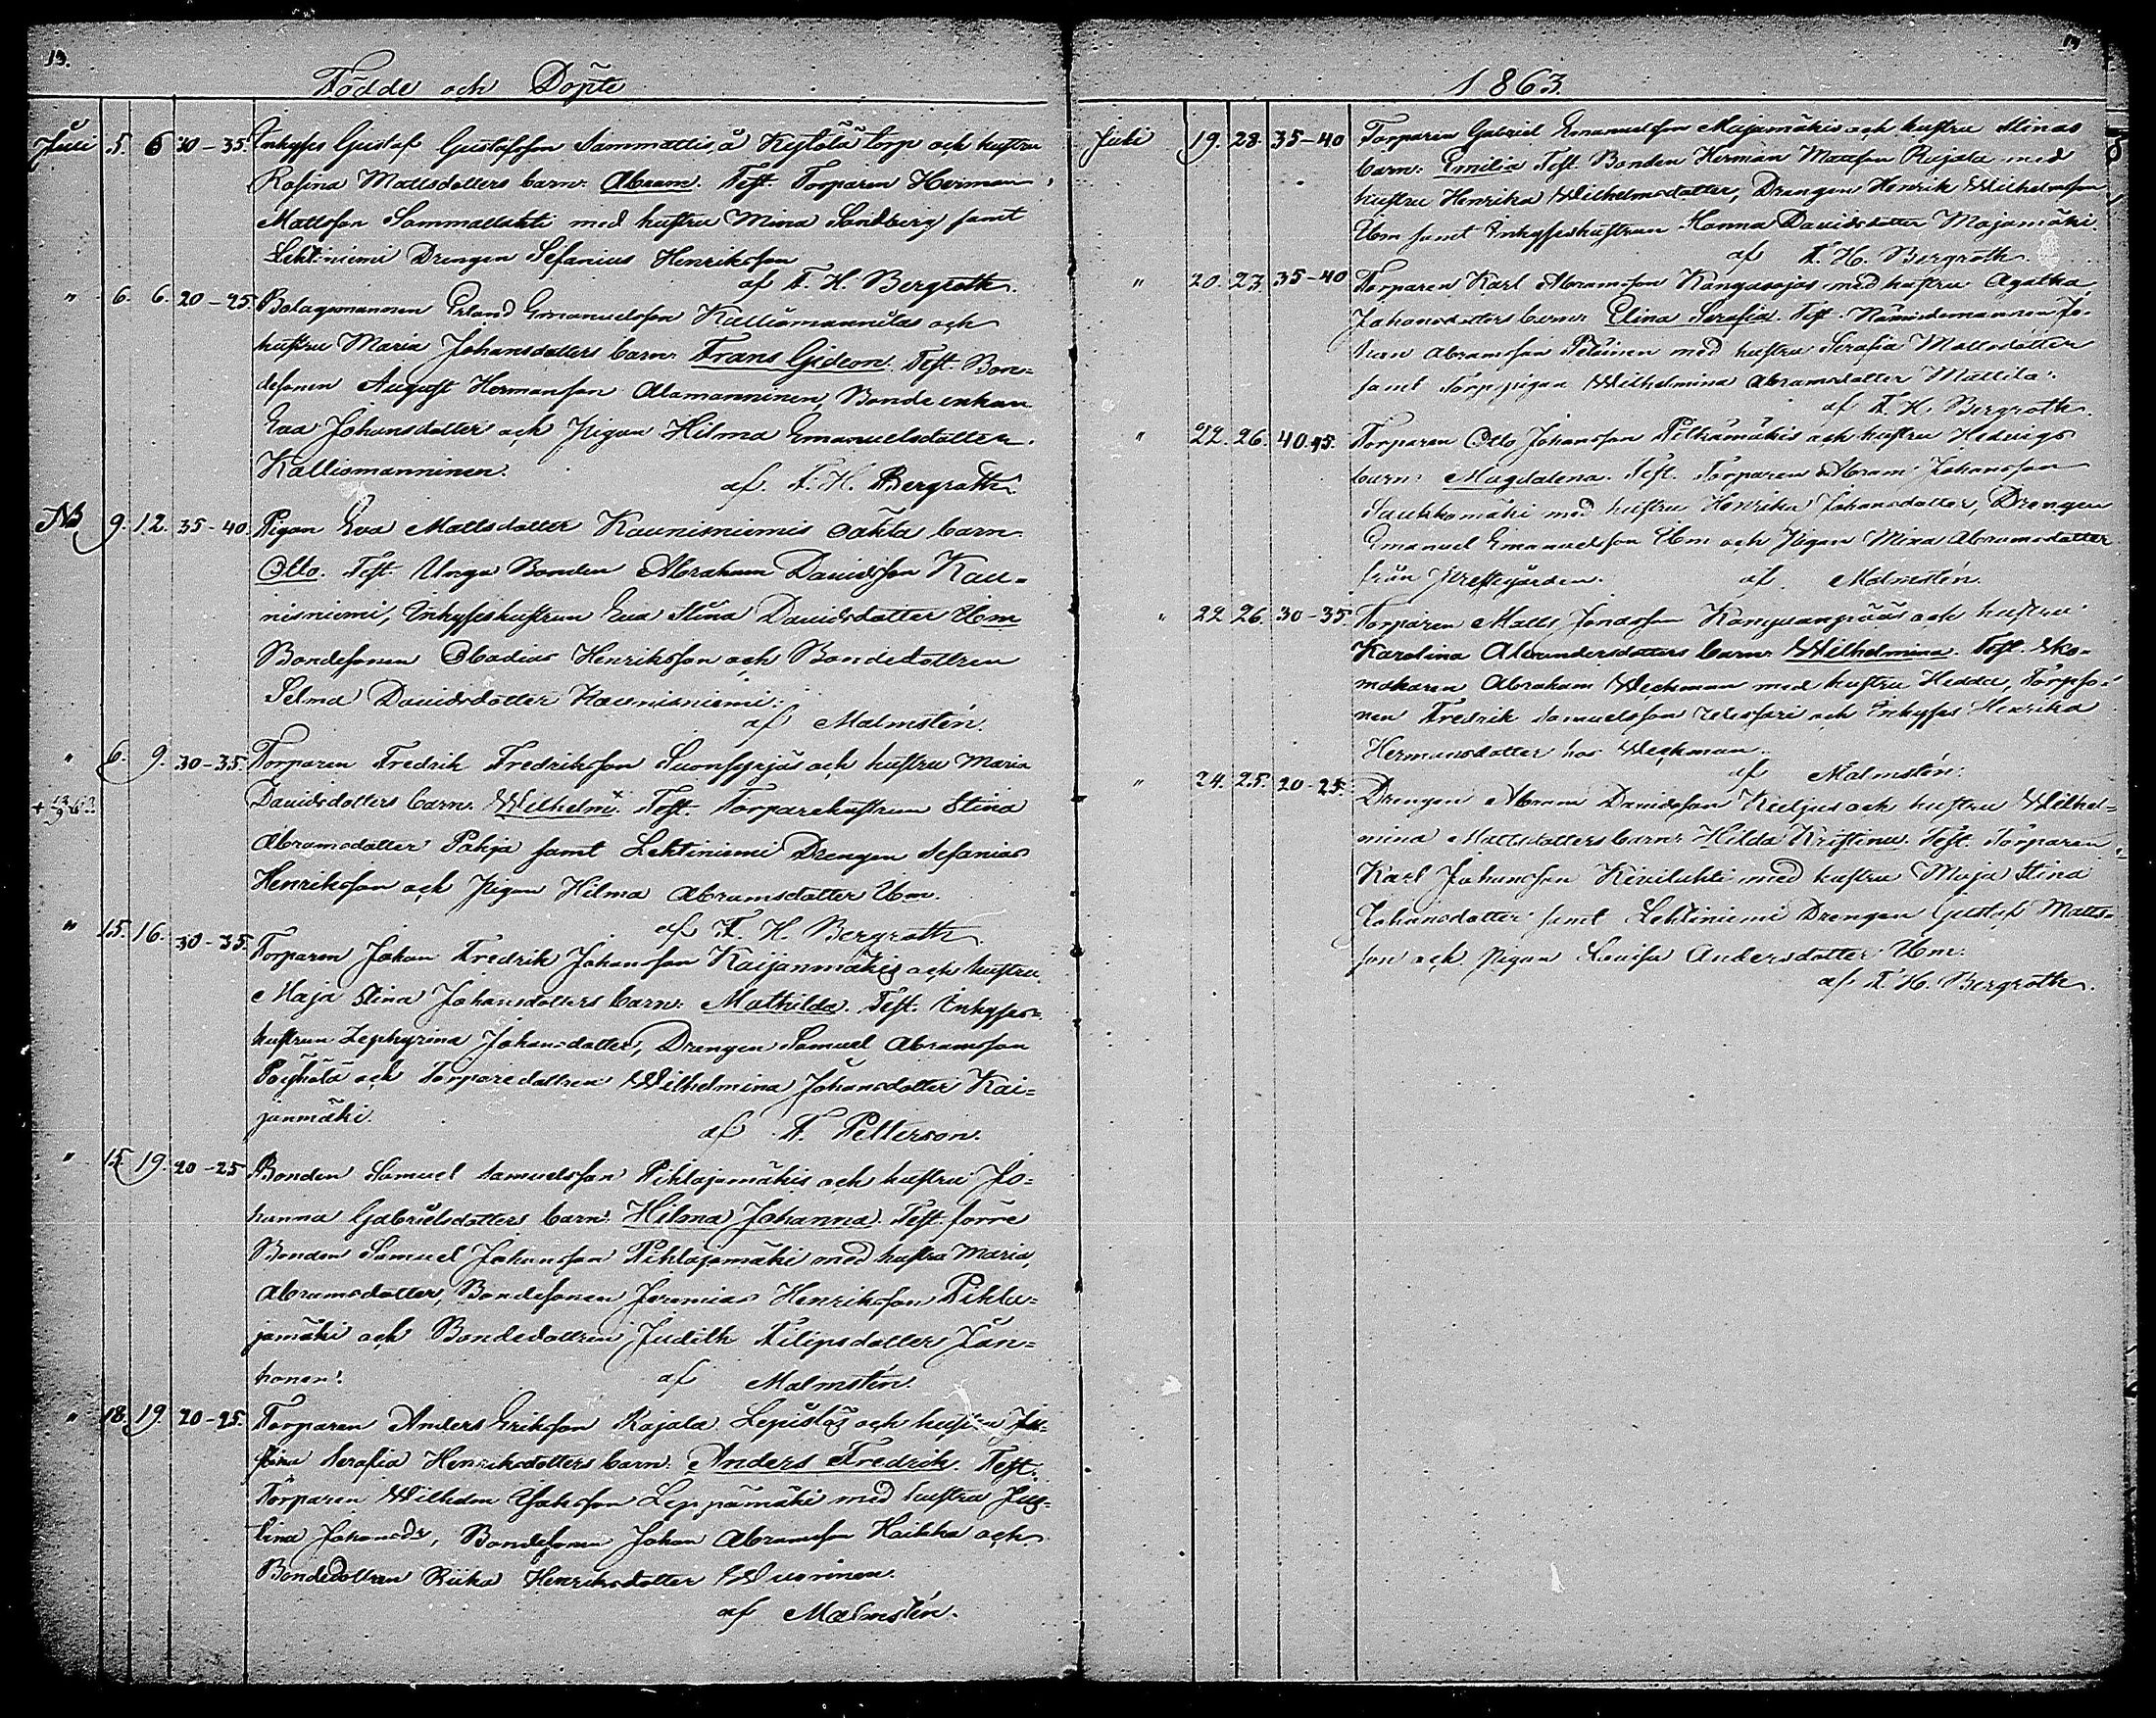 13.
Födde och Döpte
Juli 5. 6 30-35. Inhyses Gustaf Gustafsson Sammattis å torp och hustru
Rosina Mattsdotters barn: Abram. Test. Torparen Herman
Mattsson Sammallahti med hustru Mina Sandberg samt
Lehtiniemi Drengen Sefanius Henriksson
af F. H. Bergroth.
" 6. 6. 20-25. Bolagsmannen Erland Emanuelsson Kalliomannilas och
hustru Maria Johansdotters barn: Frans Gideon. Test. Bon=
desonen August Hermansson Alamanninen, Bonde enkan
Eva Johansdotter och Pigan Hilma Emanuelsdotter
Kalliomanninen.
af. F. H. Bergroth.
NB 9. 12. 35-40. Pigan Eva Mattsdotter Kaunisniemis oäkta barn
Otto. Test. Unga Bonden Abraham Davidsson Kau=
nisniemi, Inhyseshustrun Eva Stina Davidsdotter Ibm
Bondesonen Obadias Henriksson och Bondedottren
Selma Davidsdotter Kaunisniemi.
af Malmstén.
" 6. 9. 30-35. Torparen Fredrik Fredriksson och hustru Maria
Davidsdotters barn: Wilhelm + Test. Torparehustrun Stina
Abramsdotter Pohja samt Lehtiniemi Drengen Sefanias
Henriksson och Pigan Hilma Abramsdotter Ibm.
af F. H. Bergroth.
" 15. 16. 30-35. Torparen Johan Fredrik Johansson Kaijanmäkis och hustru
Maja Stina Johansdotters barn: Mathilda. Test. Inhyses=
hustrun Zephyrina Johansdotter, Drengen Samuel Abramsson
och Torparedottren Wilhelmina Johansdotter Kai=
janmäki.
af F. Petterson.
" 15. 19. 20-25 Bonden Samuel Samuelsson Pihlajamäkis och hustru Jo=
hanna Gabrielsdotters barn: Hilma Johanna. Test. förre
Bonden Samuel Johansson Pihlajamäki med hustru Maria
Abramsdotter, Bondesonen Jeremias Henriksson Pihla=
jamäki och Bondedottren Judith Filipsdotter Jun=
honen.
af Malmstén.
" 18. 19. 20-25. Torparen Anders Eriksson Rajala och hustru Ju=
stina Serafia Henriksdotters barn: Anders Fredrik. Test.
Torparen Wilhelm Leppämäki med hustru Jus=
tina Johansdr, Bondesonen Johan Abramsson Haikka och
Bondedottren Riika Henriksdotter Wuorinen.
af Malmstén.
1863.
Juli 19. 28. 35-40 Torparen Gabriel Emanuelsson Majamäkis och hustru Stinas
barn: Emilia Test. Bonden Herman Mattsson Rajala med
hustru Henrika Wilhelmsdotter, Drengen Henrik Wilhelmsson
Ibm samt Inhyseshustrun Hanna Davidsdotter Majamäki.
af F. H. Bergroth.
" 20. 27. 35-40 Torparen Karl Abramsson Kangasojas med hustru Agatha
Johansdotters barn: Elina Serafia. Test. Nämndemannen Jo=
han Abramsson med hustru Serafia Mattsdotter
samt Torppigan Wilhelmina Abramsdotter Mattila.
af F. H. Bergroth.
" 22. 26. 40-45. Torparen Otto Johansson och hustru Hedvigs
barn: Magdalena. Test. Torparen Abram Johansson
med hustru Henrika Johansdotter, Drengen
Emanuel Emanuelsson Ibm och Pigan Mina Abramsdotter
från Prestgården. af Malmstén.
" 22. 26. 30-35. Torparen Matts Jonasson och hustru
Karolina Alexandersdotters barn: Wilhelmina. Test. Sko=
makaren Abraham Weckman med hustru Hedda, Torpso=
nen Fredrik Samuelsson och Inhyses Henrika
Hermansdotter hos Weckman.
af Malmstén.
" 24. 25. 20-25. Drengen Abram Davidsson och hustru Wilhel=
mina Mattsdotters barn: Hilda Kristina. Test. Torparen
Karl Johansson Kivilahti med hustru Maja Stina
Johansdotter samt Lehtiniemi Drengen Gustaf Matts=
son och Pigan Lovisa Andersdotter Ibm.
af F. H. Bergroth.